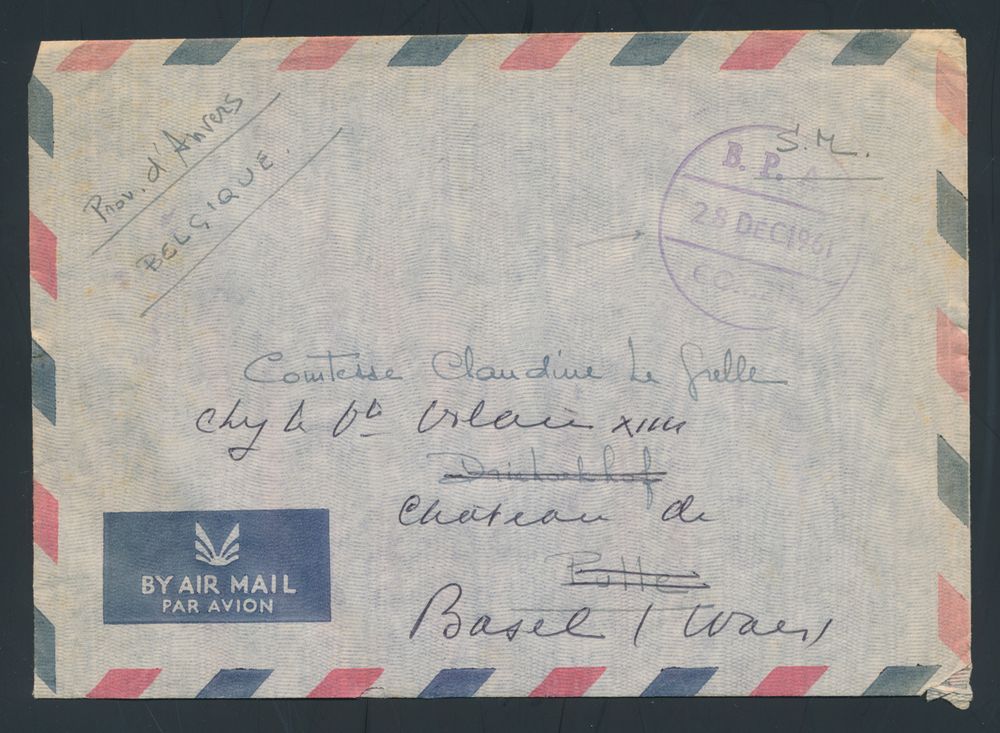 Prov. d'Anvers
BELGIQUE.
S.M.
B. P. A
28 DEC 1961
Comtesse Claudine Le Grelle
Chz le Vt Vilain XIIII
Driehoekhof
Chateau de
Putte
Basel / Waes
BY AIR MAIL
PAR AVION